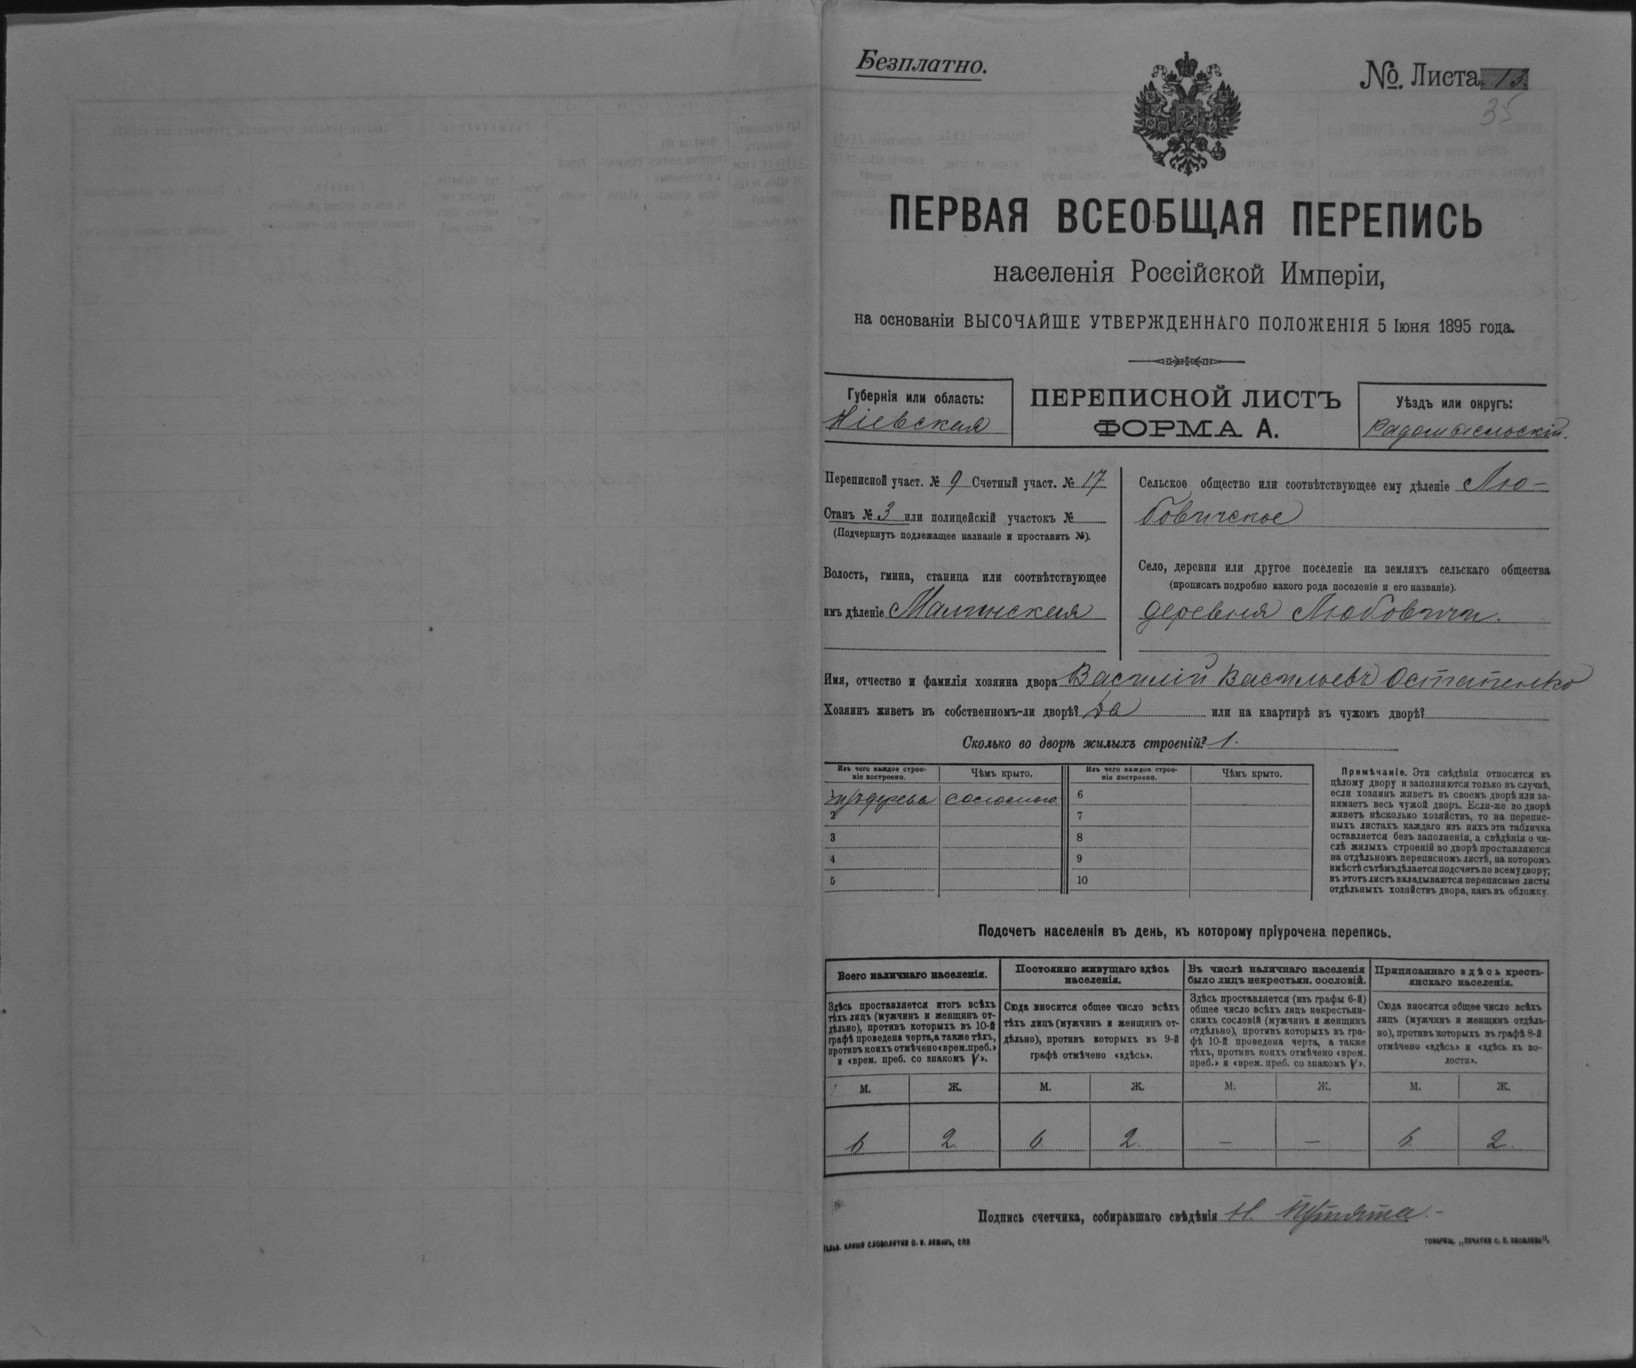 Безплатно.
№. Листа 13.
35
ПЕРВАЯ ВСЕОБЩАЯ ПЕРЕПИСЬ
населенія Россійской Имперіи,
на основаніи ВЫСОЧАЙШЕ УТВЕРЖДЕННАГО ПОЛОЖЕНІЯ 5 Іюня 1895 года.
Губернія или область:
Кіевская
ПЕРЕПИСНОЙ ЛИСТЪ
ФОРМА А.
Уѣздъ или округъ:
Радомысльскій.
Переписной участ. № 9 Счетный участ. № 17
Станъ № 3 или полицейскій участокъ №
(Подчеркнуть подлежащее названіе и проставить №).
Волость, гмина, станица или соотвѣтствующее
имъ дѣленіе Малинская
Сельское общество или соотвѣтствующее ему дѣленіе Лю-
бовичское
Село, деревня или другое поселеніе на земляхъ сельскаго общества
(прописать подробно какого рода поселеніе и его названіе).
деревня Любовичи.
Имя, отчество и фамилія хозяина двора Василій Васильевъ Остапенко
Хозяинъ живетъ въ собственномъ-ли дворѣ? да или на квартирѣ въ чужомъ дворѣ?
Сколько во дворѣ жилыхъ строеній? 1.
Изъ чего каждое строе-
ніе построено.
Чѣмъ крыто.
Изъ чего каждое строе-
ніе построено.
Чѣмъ крыто.
изъ дерева соломою
6
2
7
3
8
4
9
5
10
Примѣчаніе. Эти свѣдѣнія относятся къ
цѣлому двору и заполняются только въ случаѣ,
если хозяинъ живетъ въ своемъ дворѣ или за-
нимаетъ весь чужой дворъ. Если-же во дворѣ
живетъ нѣсколько хозяйствъ, то на перепис-
ныхъ листахъ каждаго изъ нихъ эта табличка
оставляется безъ заполненія, а свѣдѣнія о чи-
слѣ жилыхъ строеній во дворѣ проставляются
на отдѣльномъ переписномъ листѣ, на которомъ
вмѣстѣ съ тѣмъ дѣлается подсчетъ по всему двору;
въ этотъ листъ вкладываются переписные листы
отдѣльныхъ хозяйствъ двора, какъ въ обложку.
Подсчетъ населенія въ день, къ которому пріурочена перепись.
Всего наличнаго населенія.
Здѣсь проставляется итогъ всѣхъ
тѣхъ лицъ (мужчинъ и женщинъ от-
дѣльно), противъ которыхъ въ 10-й
графѣ проведена черта, а также тѣхъ,
противъ коихъ отмѣчено «врем. преб.»
и «врем. преб. со знакомъ V».
Постоянно живущаго здѣсь
населенія.
Сюда вносится общее число всѣхъ
тѣхъ лицъ (мужчинъ и женщинъ от-
дѣльно), противъ которыхъ въ 9-й
графѣ отмѣчено «здѣсь».
Въ числѣ наличнаго населенія
было лицъ некрестьян. сословій.
Здѣсь проставляется (изъ графы 6-й)
общее число всѣхъ лицъ некрестьян-
скихъ сословій (мужчинъ и женщинъ
отдѣльно), противъ которыхъ въ гра-
фѣ 10-й проведена черта, а также
тѣхъ, противъ коихъ отмѣчено «врем.
преб.» и «врем. преб. со знакомъ V».
Приписаннаго здѣсь кресть-
янскаго населенія.
Сюда вносится общее число всѣхъ
лицъ (мужчинъ и женщинъ отдѣль-
но), противъ которыхъ въ графѣ 8-й
отмѣчено «здѣсь» и «здѣсь въ во-
лости».
М. Ж. М. Ж. М. Ж. М. Ж.
6 2 6 2 — — 6 2
Подпись счетчика, собиравшаго свѣдѣнія Н. Путята
ТОВАРИЩ. „ПЕЧАТНЯ С. П. ЯКОВЛЕВА“.